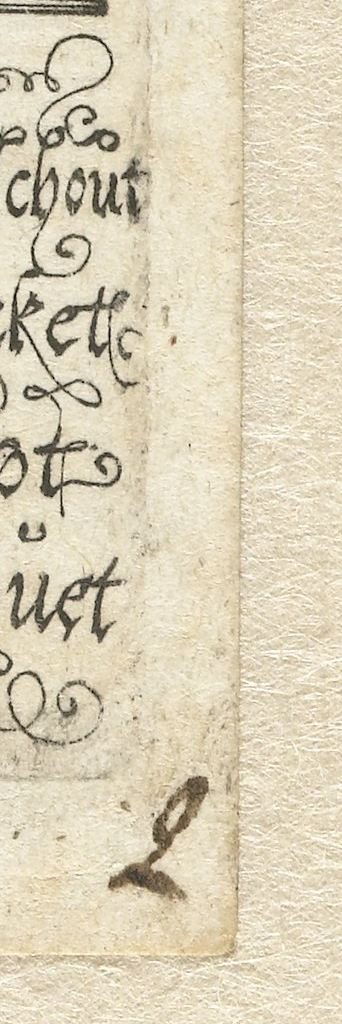 chout
ket
ot
uet
2